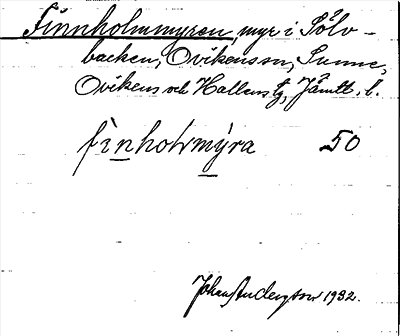 Finnholmmyren, myr i Sölv-
backen, Ovikens sn, Sunne,
Ovikens och Hallens tg, Jämtl. l.
finholmmyra 50
Johan Anderson 1932.